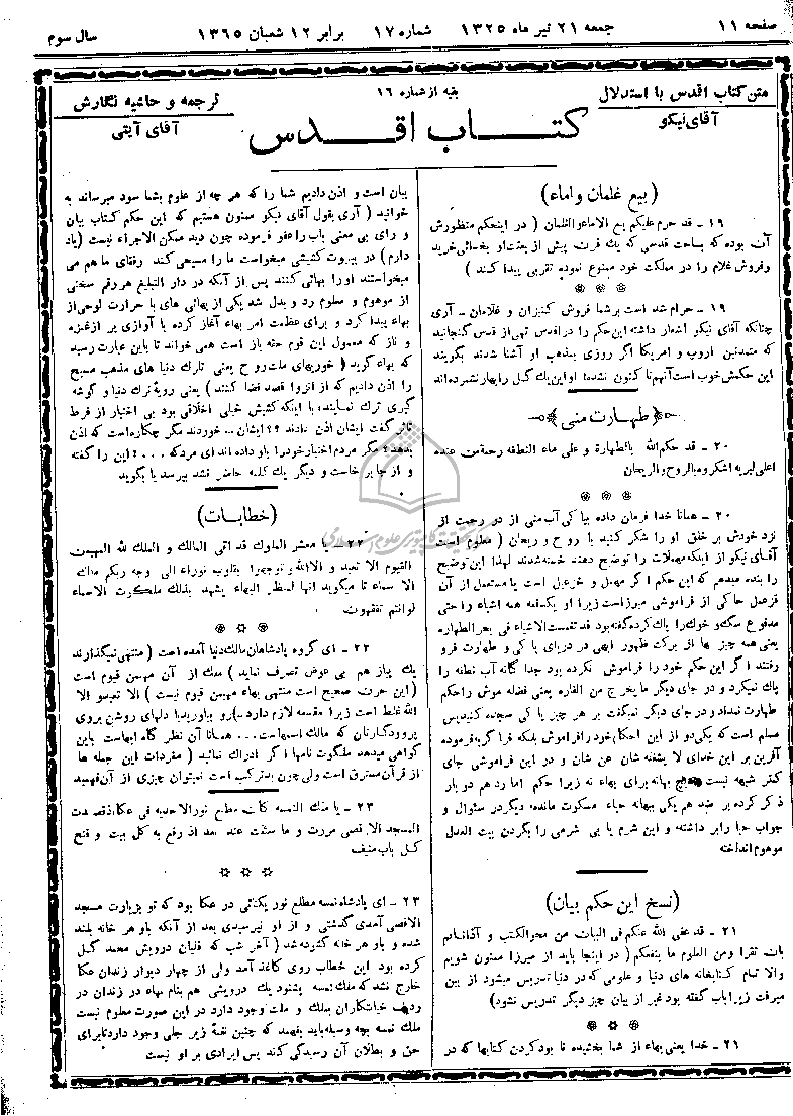 صفحه ۱۱ جمعه ۲۱ تیر ماه ۱۳۲۵ شماره ۱۷ برابر ۱۲ شعبان ۱۳۶۵ سال سوم
متن کتاب اقدس با استدلال
آقای نیکو
بقیه از شماره ۱۶
کتاب اقدس
ترجمه و حاشیه نگارش
آقای آیتی
(بیع غلمان و اماء)
۱۹ - قد حرم علیکم بیع الاماء والغلمان ( در اینحکم منظورش
آن بوده که بساحت قدسی که یک قرن پیش از بعثت او بخدائی خرید
وفروش غلام را در مملکت خود ممنوع نموده تقربی پیدا کند )
۱۹ - حرام شده است برشما فروش کنیزان و غلامان - آری
چنانکه آقای نیکو اشعار داشته این حکم را در اقدس تهی از قدس گنجانید
که متمدنین اروپ و امریکا اگر روزی بمذهب او آشنا شدند بگویند
این حکمش خوب است آنهم تا کنون نشده او این یک گل را بهار نشمرده اند
(طهارت منی)
۲۰ - قد حکم الله بالطهارة و علی ماء النطفه رحمة من عنده
اعلی البریه اشکروه بالروح والریحان
۲۰ - همانا خدا فرمان داده بپاکی آب منی از در رحمت از
نزد خودش بر خلق او را شکر کنید با روح و ریحان ( معلوم است
آقای نیکو از اینکه مهملات را توضیح دهند خسته شدند لهذا این توضیح
را بنده میدهم که این حکم اگر مهمل و خزعبل است یا مستعمل از آن
قزعمل حاکی از فراموشی میرزاست زیرا او یکدفعه همه اشیاء را حتی
مدفوع سگ و خوک را پاک کرده گفته بود قد تغمست الاشیاء فی بحر الطهاره
یعنی همه چیز ها از برکت ظهور ابهی در دریای پاکی و طهارت فرو
رفتند اگر این حکم خود را فراموش نکرده بود جدا گانه آب نطفه را
پاک نمیکرد و در جای دیگر ما یخرج من الفاره یعنی فضله موش را حکم
طهارت نمیداد و در جای دیگر نمیگفت بر هر چیز پاکی سجده کنید پس
مسلم است که یکی دو از این احکام خود را فراموش
آفرین بر این خدای لا یشغله شان عن شان و در این فراموشی جای
کمتر شبهه نیست هیچ بهانه برای بهاء نه زیرا حکم اما رد هم دو بار
ذکر کرده بر عبد هم یکی بیهانه حیاء مسکوت مانده دیگر در سئوال و
جواب حیا را بر داشته و این شرم یا بی شرمی را بگردن بیت العدل
موهوم انداخته
(نسخ این حکم بیان)
۲۱ - قد عفی الله عنکم فی البیان من محو الکتب و آذناکم
بان تقرا ومن العلوم ما ینفعکم ( در اینجا باید از میرزا ممنون شویم
والا تمام کتابخانه های دنیا و علومی که در دنیا تدریس میشود از بین
میرفت زیرا باب گفته بود غیر از بیان چیز دیگر تدریس نشود)
۲۱ - خدا یعنی بهاء از شما بخشیده نا بود کردن کتابها که در
بیان است و اذن دادیم شما را که هر چه از علوم بشما سود میرساند به
خوانید ( آری بقول آقای نیکو ممنون هستیم که این حکم کتاب بیان
و رای بی معنی باب را عفو فرموده چون دید ممکن الاجراء نیست (یاد
دارم ) در بیروت کشیشی میخواست ما را مسیحی کند رفقای ما هم می
میخواستند او را بهائی کنند پس از آنکه در دار التبلیغ هر رقم سخنی
از موهوم و معلوم رد و بدل شد یکی از بهائی های با حرارت لوحی از
بهاء پیدا کرد و برای عظمت امر بهاء آغاز کرده با آوازی بر ازغمزه
و ناز که معمول این قوم حقه باز است همی خواند تا باین عبارت رسید
که بهاء گوید ( خوریهای ملت روح یعنی تارک دنیا های مذهب مسیح
را اذن دادیم که از انزوا قصد فضا کنند ) یعنی رویهٔ ترک دنیا و گوشه
گیری ترک نمایند با اینکه کشیش خیلی اخلاقی بود بی اختیار از فرط
تاثر گفت ایشان اذن دادند ؟؟ ایشان ... خوردند مگر چکاره است که اذن
بدهد؟ مگر مردم اختیار خود را باو داده اند ای مرد که ۰۰۰۰ این را گفته
و از جا بر خاست و دیگر یک کلمه حاضر نشد بپرسد یا بگوید
(خطابات)
۲۲ - یا معشر الملوک قد اتی المالک و الملک لله المهیمن
القیوم الا تعبد و الا الله و توجهوا بقلوب نوراء الی وجه ربکم مالک
الا سماء
لوانتم تفقهون
۲۲ - ای گروه پادشاهان مالک دنیا آمده است ( منتهی نمیگذارند
یک پیاز هم بی عوض تصرف نماید ) ملک از آن مهیمن قیوم است
( این حرف صحیح است منتهی بهاء مهیمن قیوم نیست ) الا تعبدو الا
الله غلط است زیرا مقدمه لازم دارد -)رو بیاورید با دلهای روشن بروی
پروردگارتان که مالک اسمهاست ... همانا آن نظر گاه ابهاست باین
گواهی میدهد ملکوت نامها اگر ادراک نمائید ( مفردات این جمله ها
از قرآن مسترق است ولی چون بد ترکیب است نمیتوان چیزی از آن فهمید
۲۳ - یا ملک النمسه کان مطلع نور الاحدیه فی عکا اذ قصدت
المسجد الا قصی مررت و ما سئلت عنه بعد اذ رفع به کل بیت و فتح
کل باب منیف
۲۳ - ای پادشاه نمسه مطلع نور یکتائی در عکا بود که تو بزیارت مسجد
الاقصی آمدی گذشتی و از او نپرسیدی بعد از آنکه باو هر خانه بلند
شده و باو هر خانه گشوده شد ( آخر شب که قلیان درویش محمد گل
کرده بود این خطاب روی کاغذ آمد ولی از چهار دیوار زندان عکا
خارج نشد که ملک نمسه بشنود یک درویشی هم بنام بهاء در زندان در
ردیف خیانتکاران بملک و ملت وجود دارد در این صورت معلوم نیست
ملک نمسه بچه وسیله باید بفهمد که چنین نقهٔ زیر جلی وجود دارد تا برای
حق و بطلان آن رسیدگی کند پس ایرادی بر او نیست